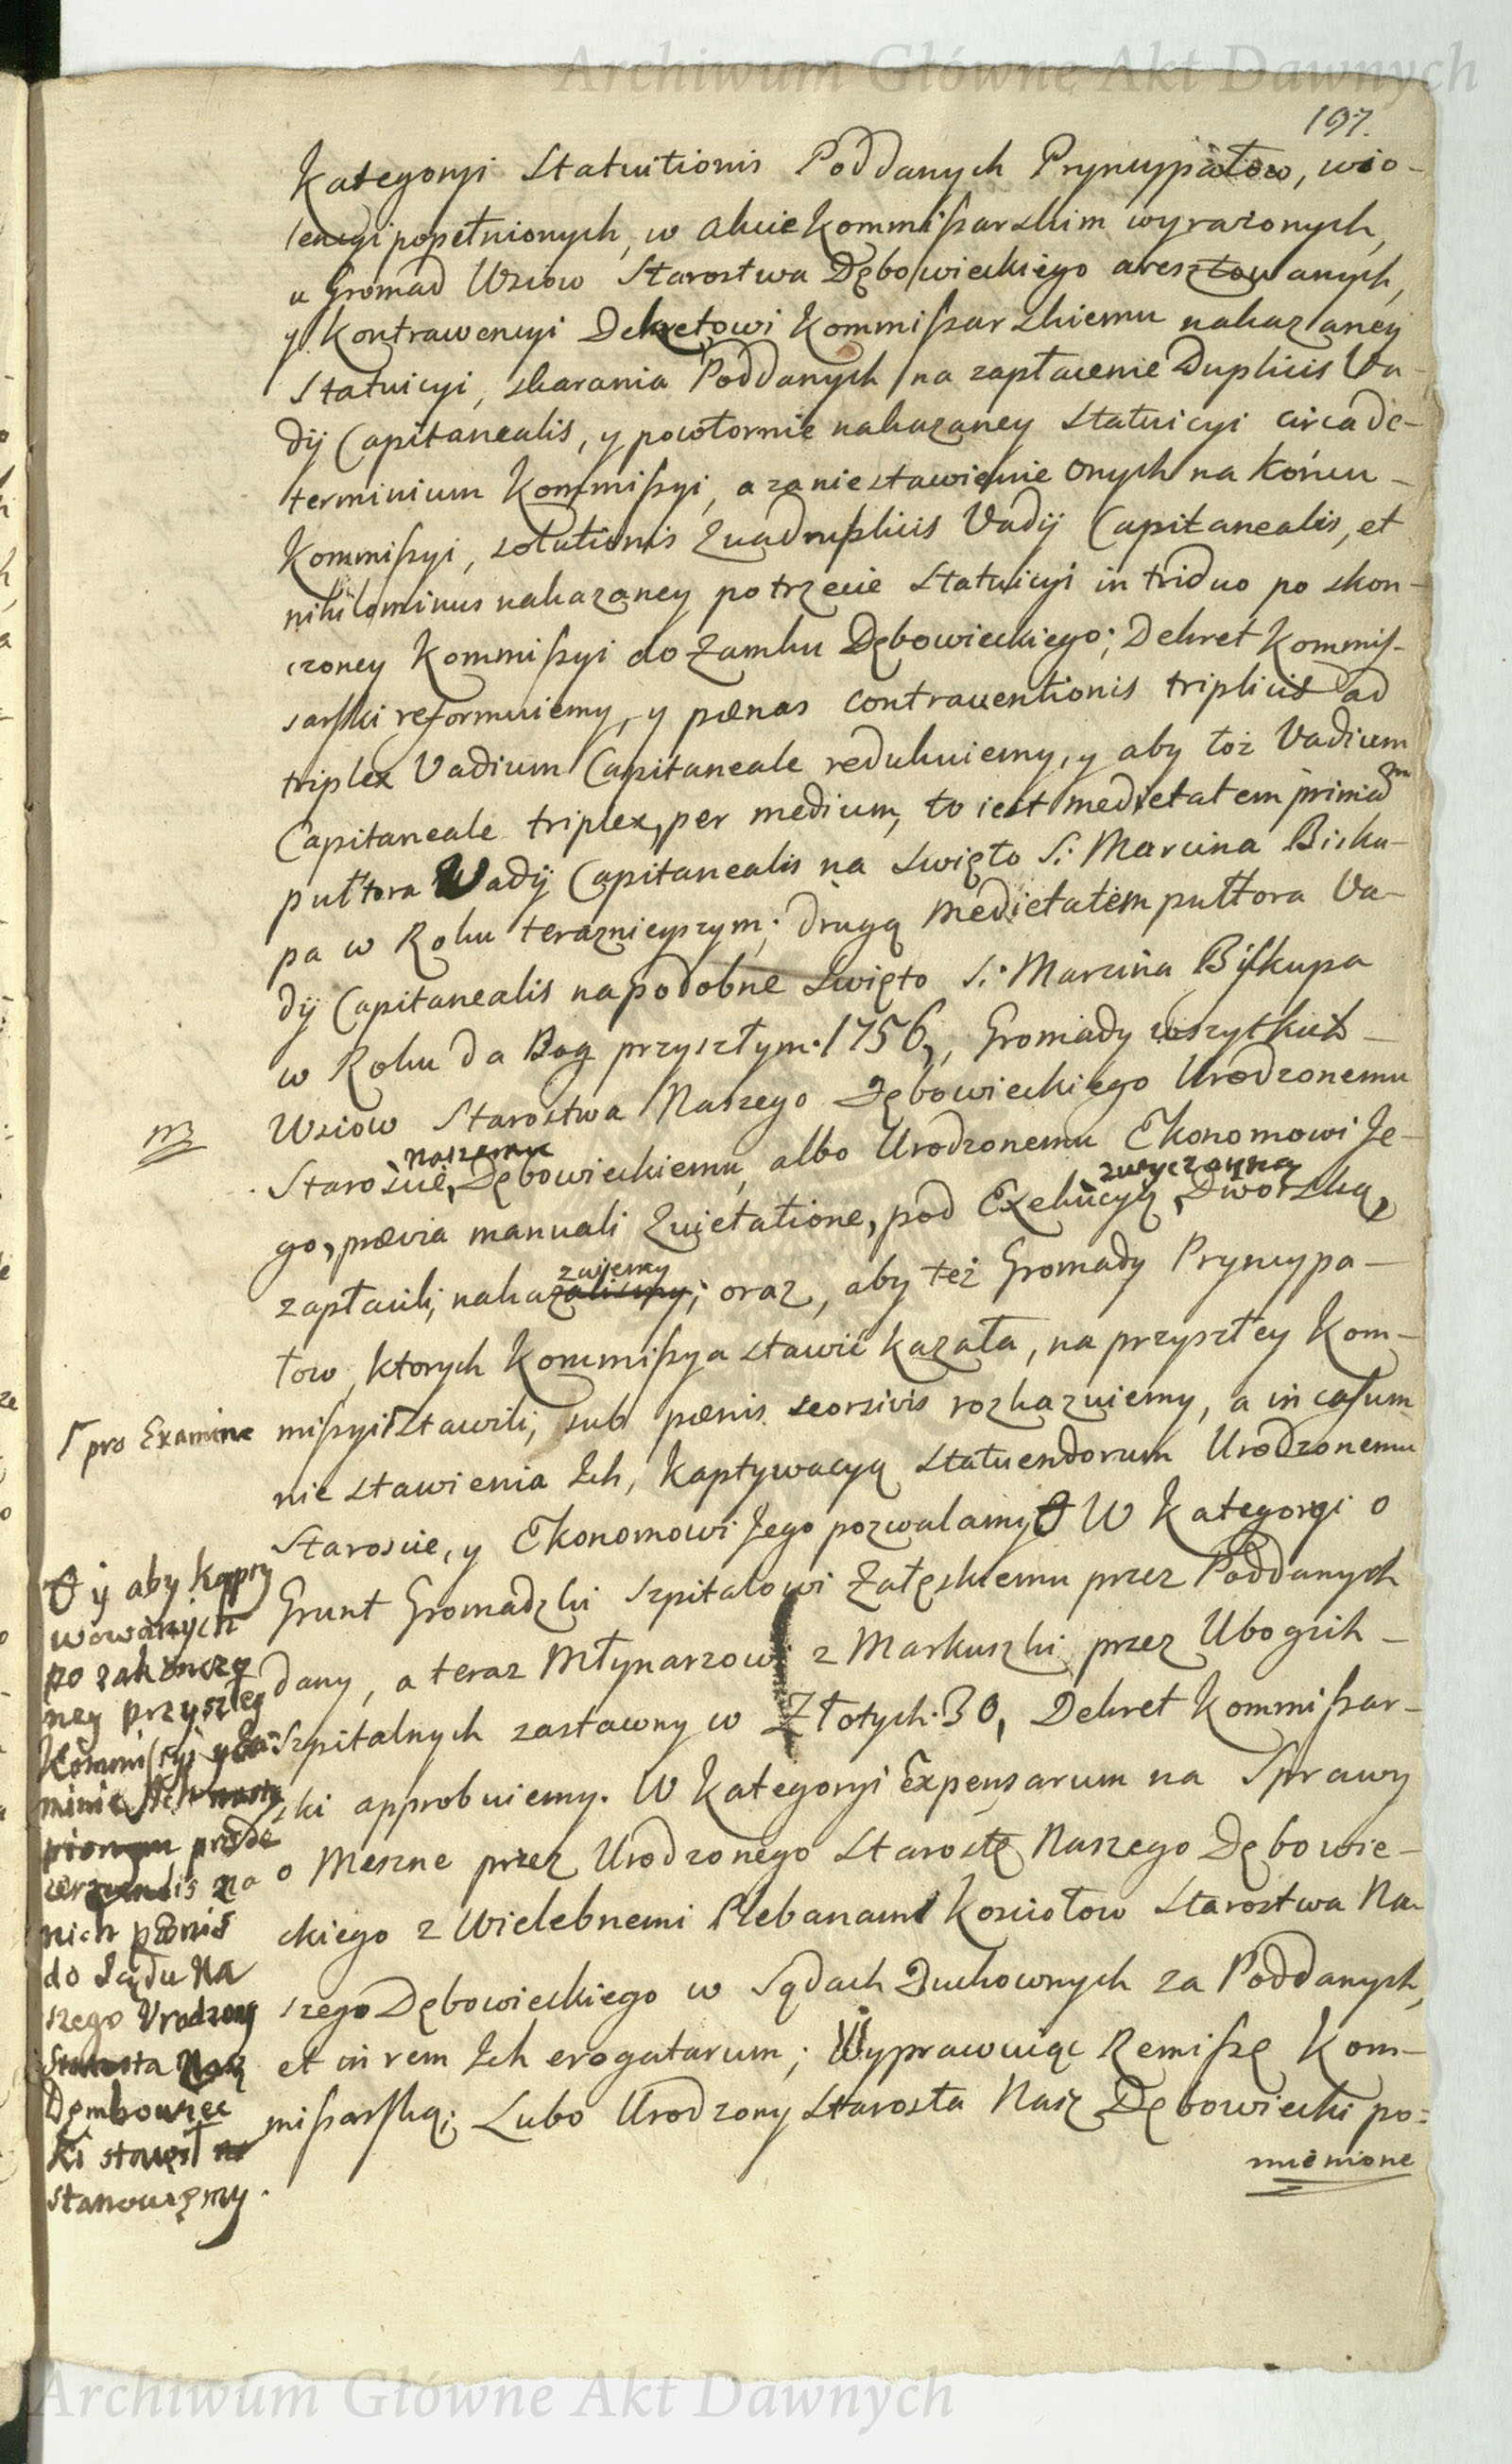 Archiwum Główne Akt Dawnych
197.
Kategoryi Statuitionis Poddanych Pryncypałow, wio-
lencyi popełnionych, w akcie Kommißarskim wyrażonych,
u Gromad Wsiow Starostwa Dębowieckiego aresztowanych,
y Kontrawencyi Dekretowi Kommißarskiemu nakazaney
Statuicyi, skarania Poddanych na zapłacenie Duplicis Va-
dij Capitanealis, y powtornie nakazaney Statuicyi circa de-
terminium Kommißyi, a za niestawienie onych na Końcu
Kommißyi, solutionis Quadruplicis Vadij Capitanealis, et
nihilominus nakazaney po trzecie Statuicyi in triduo po skon-
czoney Kommißyi do Zamku Dębowieckiego; Dekret Kommis-
sarski reformuiemy, y pœnas contraventionis triplicis ad
triplex Vadium Capitaneale redukuiemy, y aby toż Vadium
Capitaneale triplex, per medium, to iest medietatem primam
pułtora Vadij Capitanealis na Swięto S: Marcina Bisku-
pa w Roku teraznieyszym; drugą medietatem pułtora Va-
dij Capitanealis na podobne Swięto S: Marcina Biskupa
w Roku da Bog przyszłym 1756, Gromady wszytkich
Wsiow Starostwa Naszego Dębowieckiego Urodzonemu
naszemu
Staroscie, Dębowieckiemu, albo Urodzonemu Ekonomowi Je-
zwyczayną
go, prævia manuali Quietatione, pod Exekucyą Dworską,
zuiemy
zapłacili, nakazalismy; oraz, aby też Gromady Pryncypa-
łow, ktorych Kommißya stawić kazała, na przyszłey Kom-
pro Examine
mißyi stawili, sub pœnis seorsivis rozkazuiemy, a in casum
nie stawienia Ich, Kaptywacyą statuendorum Urodzonemu
Staroscie, y Ekonomowi Jego pozwalamy W Kategoryi o
Grunt Gromadzki Szpitalowi Załęskiemu przez Poddanych
dany, a teraz Młynarzowi z Markuszki przez Ubogich
Szpitalnych zastawny w Złotych 30, Dekret Kommißar-
ski approbuiemy. W Kategoryi Expensarum na Sprawy
o Meszne przez Urodzonego Starostę Naszego Dębowie-
ckiego z Wielebnemi Plebanami Kosciołow Starostwa Na-
szego Dębowieckiego w Sądach Duchownych za Poddanych,
et in rem Ich erogatarum; Wyprawuiąc Remißę Kom-
mißarską; Lubo Urodzony Starosta Nasz Dębowiecki po-
mienione
y aby kapty
wowanych
po zakończo
ney przyszłey
Kommissyi y Exa-
minie Ich
pro de
cer na
nich pœnis
do Sądu Na
szego Urodzony
Starosta Nasz
Dembowiec
ki stawił
stanowięmy.
Archiwum Główne Akt Dawnych